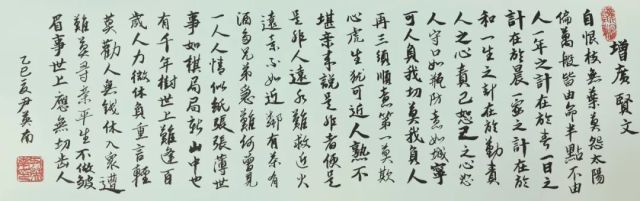 增廣賢文
自恨枝無葉莫怨太陽
偏萬般皆由命半點不由
人一年之計在於春一日之
計在於晨一家之計在於
和一生之計在於勤責
人之心責己恕己之心恕
人守口如瓶防意如城寧
可人負我切莫我負人
再三須順意第一莫欺
心虎生犹可近人熟不
堪親來說是非者便是
是非人遠水難救近火
遠親不如近鄰有茶有
酒多兄弟急難何曾見
一人人情似紙張張薄世
事如棋局局新山中也
有千年樹世上難逢百
歲人力微休負重言輕
莫勸人無錢休入衆遭
難莫尋親平生不做皺
眉事世上應無切齒人
乙巳夏尹英南